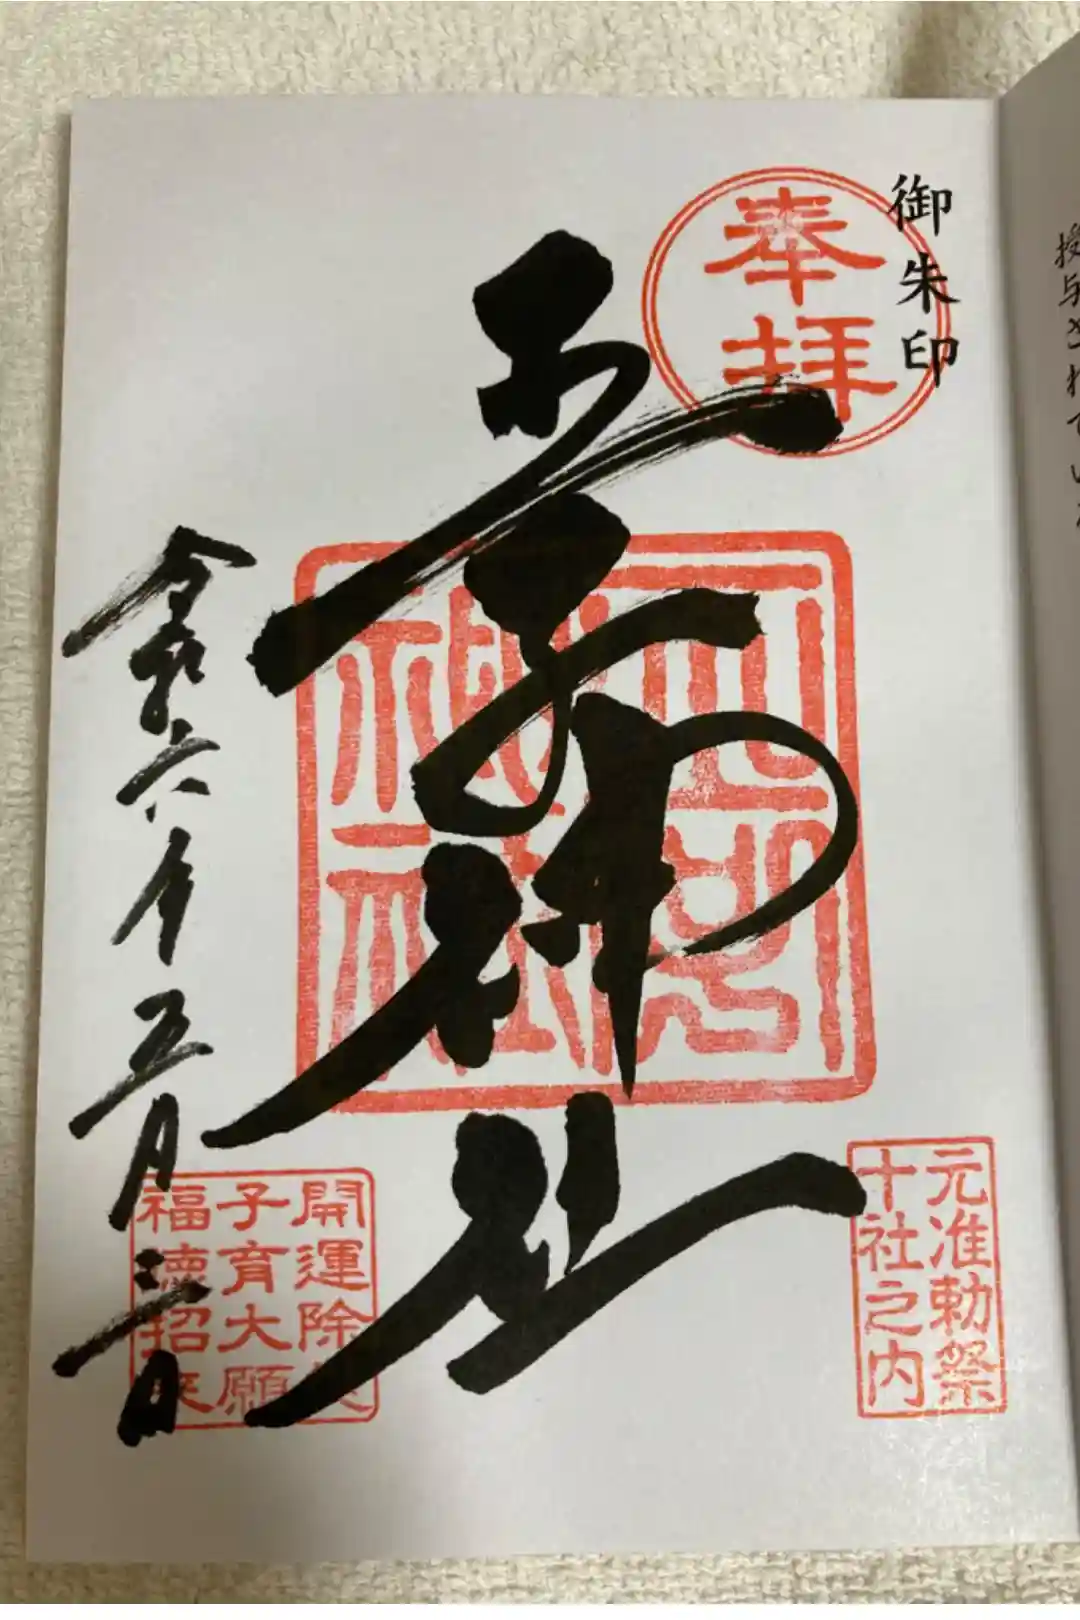 御朱印
奉拝
王子神社
元准勅祭
十社之内
開運除災
子育大願
福徳招来
令和六年五月三日
授与されてい